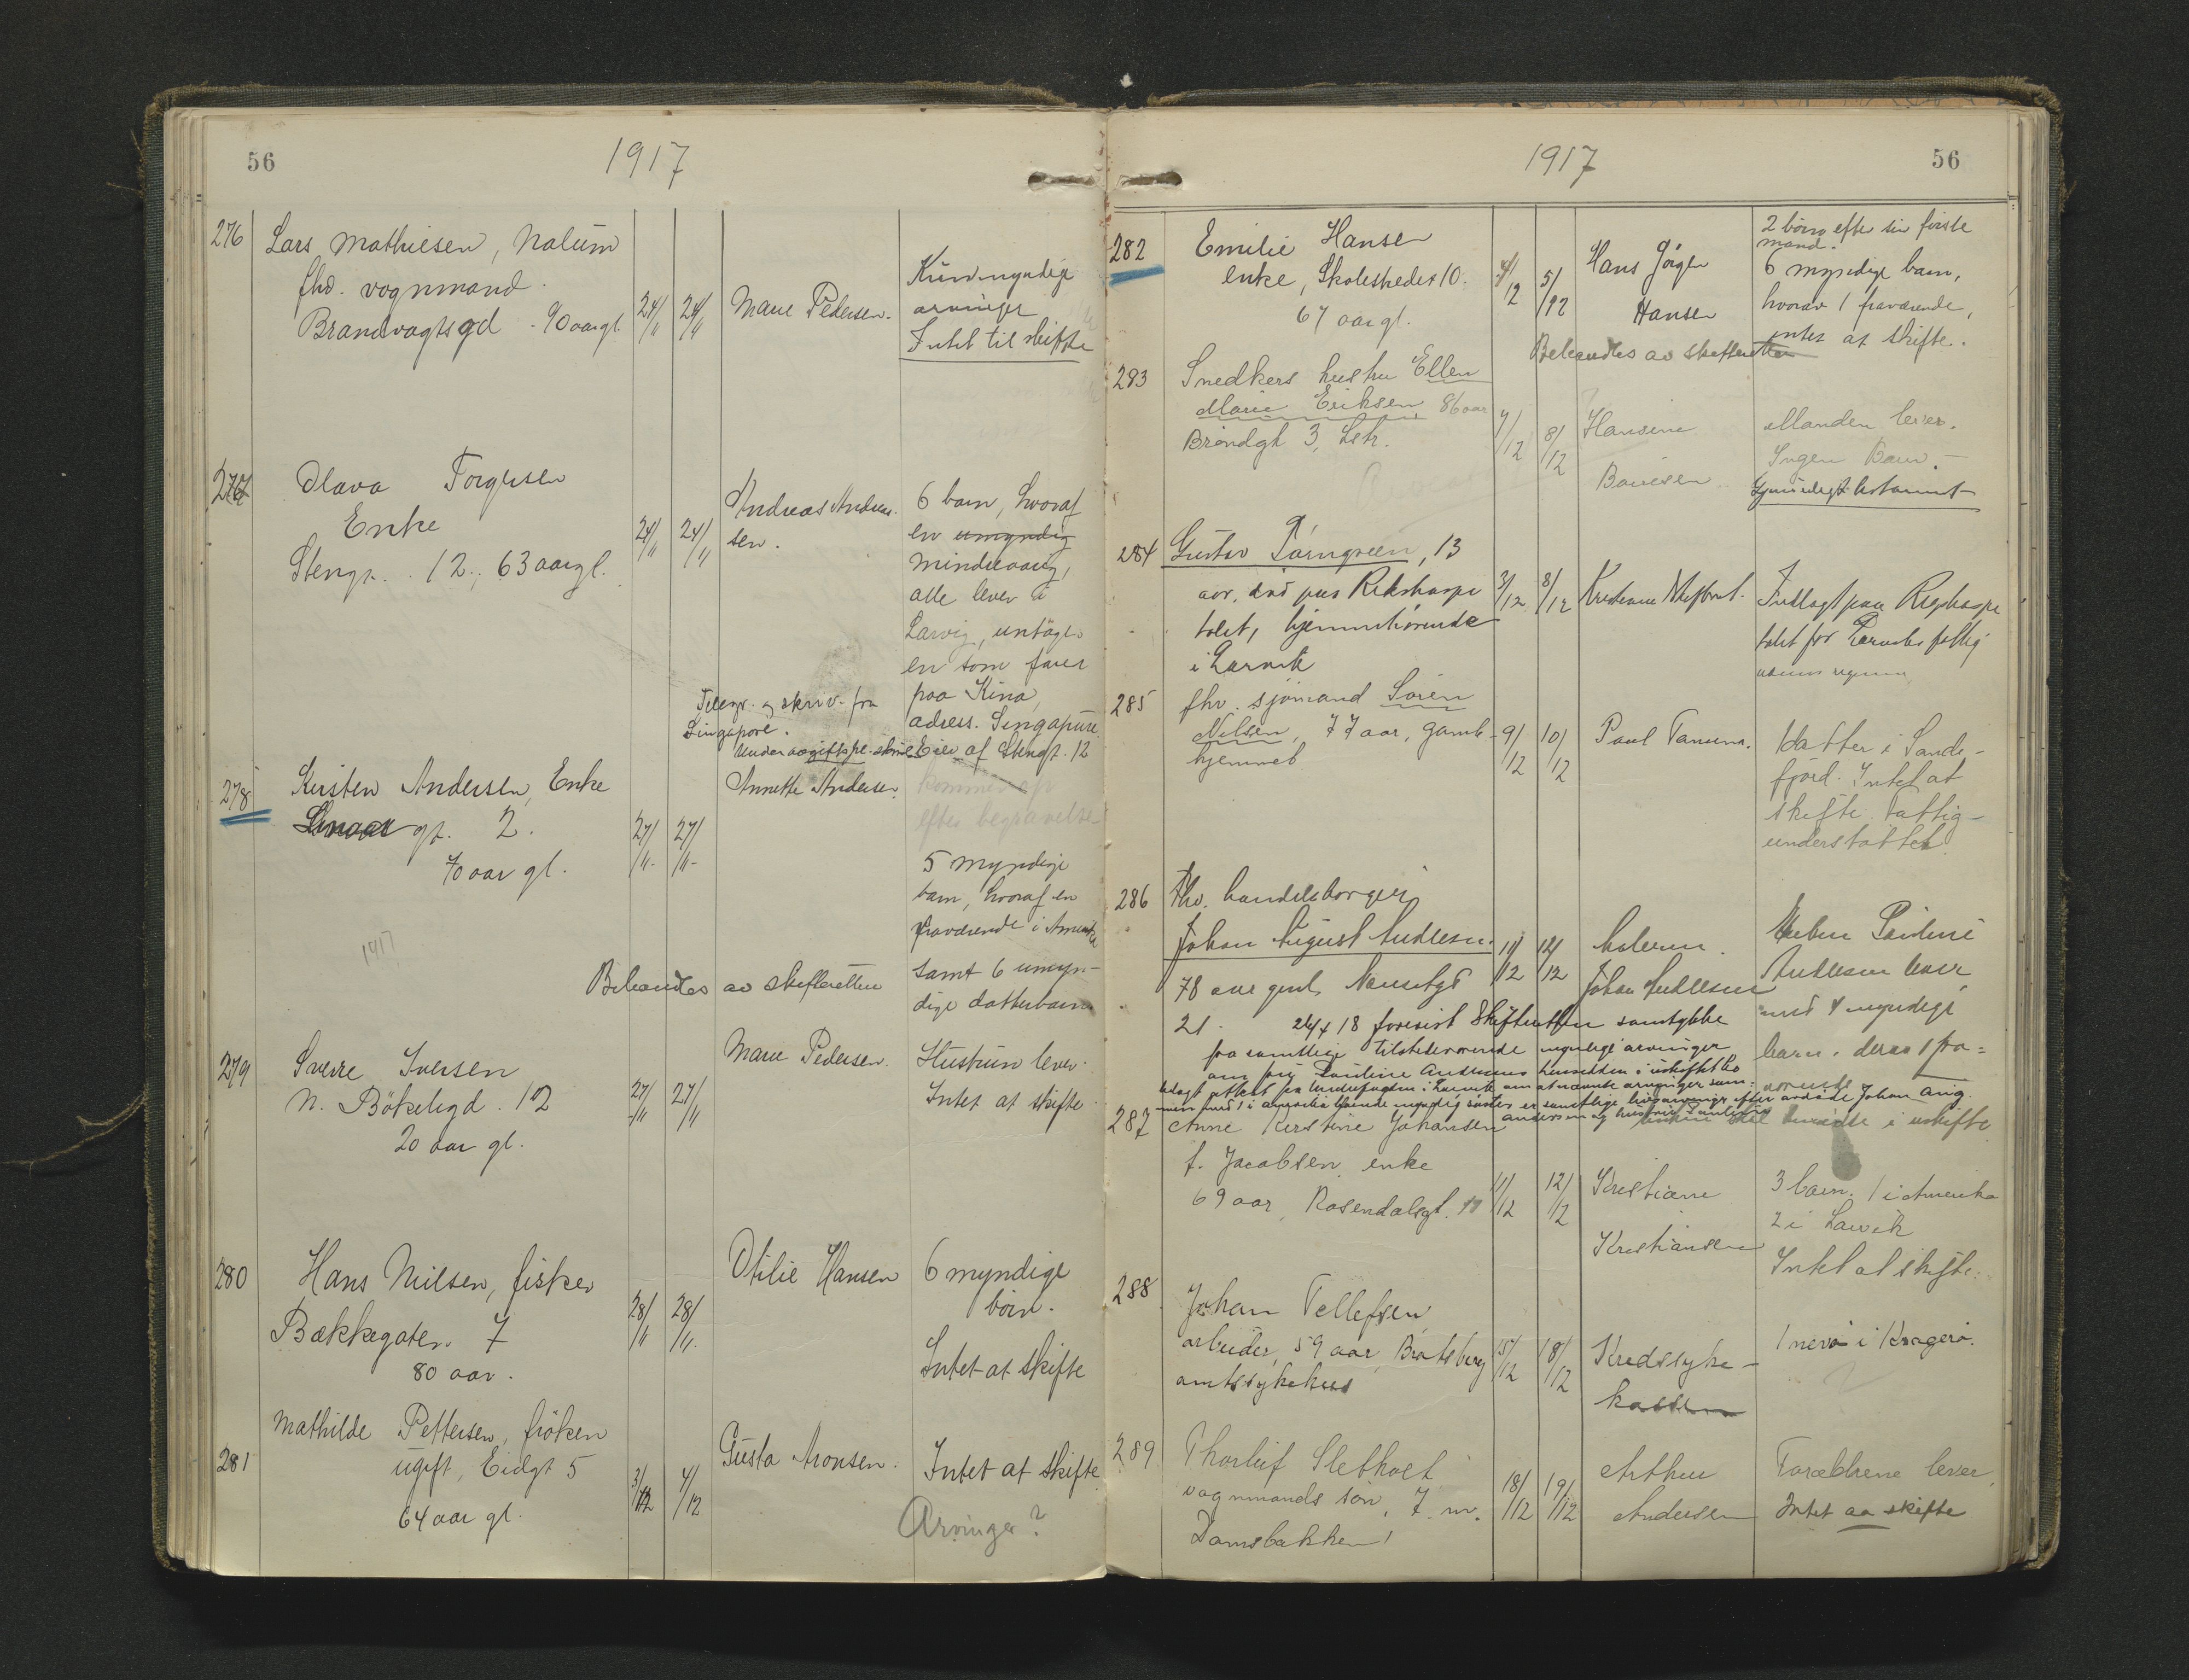 56
1917
276
Lars Mathiesen, Nalum
fhv. vognmand
Brandvagtsgd - 90 aar gl.
24/11
24/11
Marie Pedersen.
Kun myndige
arvinger
Intet til skifte
277
Olava Torgersen
Enke
Stengt. 12., 63 aar gl.
24/11
24/11
Andreas Andrea-
sen.
6 barn, hvoraf
en umyndig
mindreaarig,
alle lever i
Larvig, untagen
en som farer
paa Kina,
adress. Singapure.
Eier af Stengt. 12
Telegr. og skriv. fra
Singapore.
278
Kirsten Andersen, Enke
gt. 2.
70 aar gl.
27/11
27/11
Annette Andersen.
kommer
efter begravelse
5 myndige
barn, hvoraf en
fraværende i Amerika
samt 6 umyn-
dige datterbarn
1917
Behandles av skifteretten
279
Sverre Iversen
N. Bökeligd. 12
20 aar gl.
27/11
27/11
Marie Pedersen.
Hustrun lever.
Intet at skifte
280
Hans Nilsen, fisker
Bækkegaten 7
80 aar.
28/11
28/11
Otilie Hansen
6 myndige
börn.
Intet at skifte
281
Mathilde Pettersen, fröken
ugift, Eidgt 5
64 aar gl.
3/12
4/12
Gusta Aronsen.
Intet at skifte
Arvinger?
1917
56
282
Emilie Hansen
enke, Skolestredet 10.
67 aar gl.
4/12
5/12
Hans Jörgen
Hansen
2 börn efter sin förste
mand.
6 myndige barn,
hvorav 1 fraværende,
intet at skifte.
Behandles av skifteretten
283
Snedkers hustru Ellen
Marie Eriksen 86 aar
Bröndgt 3, Lstr.
7/12
8/12
Hansine
Manden lever.
Ingen Barn.
Gjensidigt testament
284
Gustav Törngreen, 13
aar, död paa Rikshospi
talet, hjemmehörende
i Larvik
3/12
8/12
Indlagt paa Rigshospi
talet for Larviks fattig
285
fhv. sjömand Sören
Nilsen, 77 aar, gamle-
hjemmet
9/12
10/12
Paul Tanum.
Datter i Sande-
fjord. Intet at
skifte. Fattig-
understöttet
286
Fhv. handelsborger
Johan August Andresen.
78 aar gml. Nansetgt
21.
11/12
12/12
Johan Andresen
Enken Pauline
Andresen lever
med 4 myndige
barn. derav 1 fra-
værende
24/4 18 forevist Skifteretten samtykke
fra samtlige tilstedeværende myndige arvinger
287
Anne Kirstine Johansen
f. Jacobsen, enke
69 aar, Rosendalsgt. 11
11/12
12/12
Kristiane
Kristiansen
3 barn, 1 i Amerika
2 i Larvik
Intet at skifte.
288
Johan Tellefsen
arbeider, 59 aar, Bratsberg
amtssykehus
15/12
18/12
Kredssyke-
kassen
1 nevö i Kragerö.
289
Thorleif Sletholt
vognmands sön, 7 m.
Damsbakken 1
18/12
19/12
Arthur
Andersen
Forældrene lever
Intet aa skifte